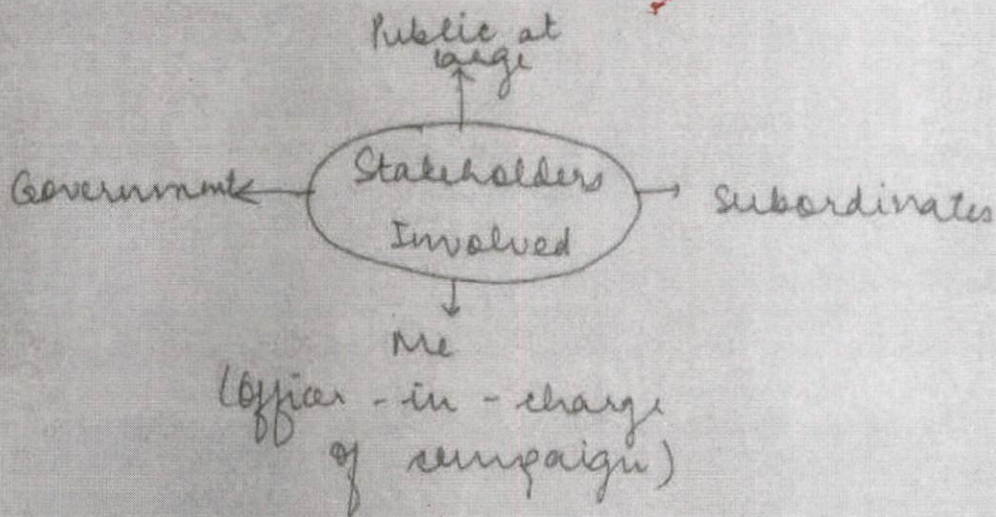 Public at
large
Government
Stakeholders
Involved
Subordinates
Me
(Officer - in - charge
of campaign)